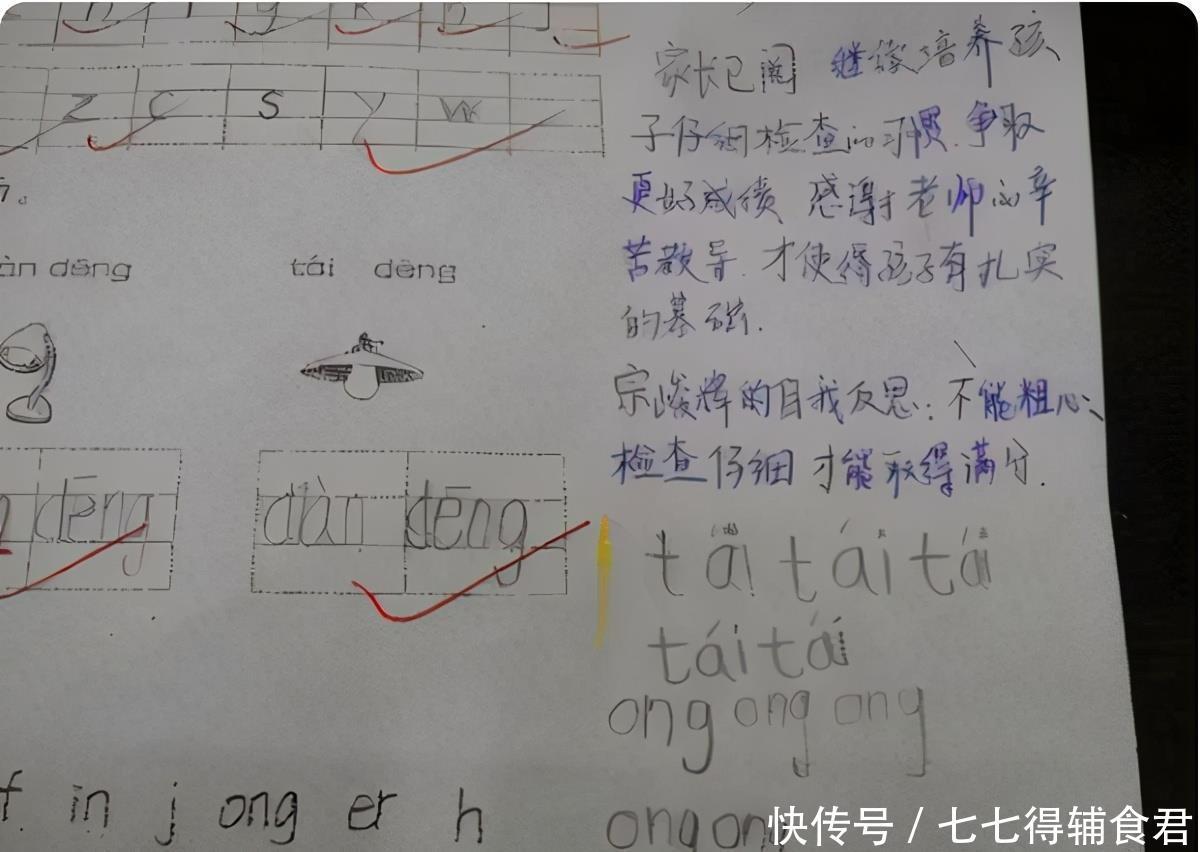 z c s y w
àn dēng
tái dēng
dēng
diàn dēng
f in j ong er h
家长已阅 继续培养孩
子仔细检查的习惯.争取
更好成绩 感谢老师的辛
苦教导.才使得孩子有扎实
的基础.
宗峻辉的自我反思:不能粗心、
检查仔细才能取得满分.
tái tái tái
tái tái
ong ong ong
ong ong
快传号 / 七七得辅食君